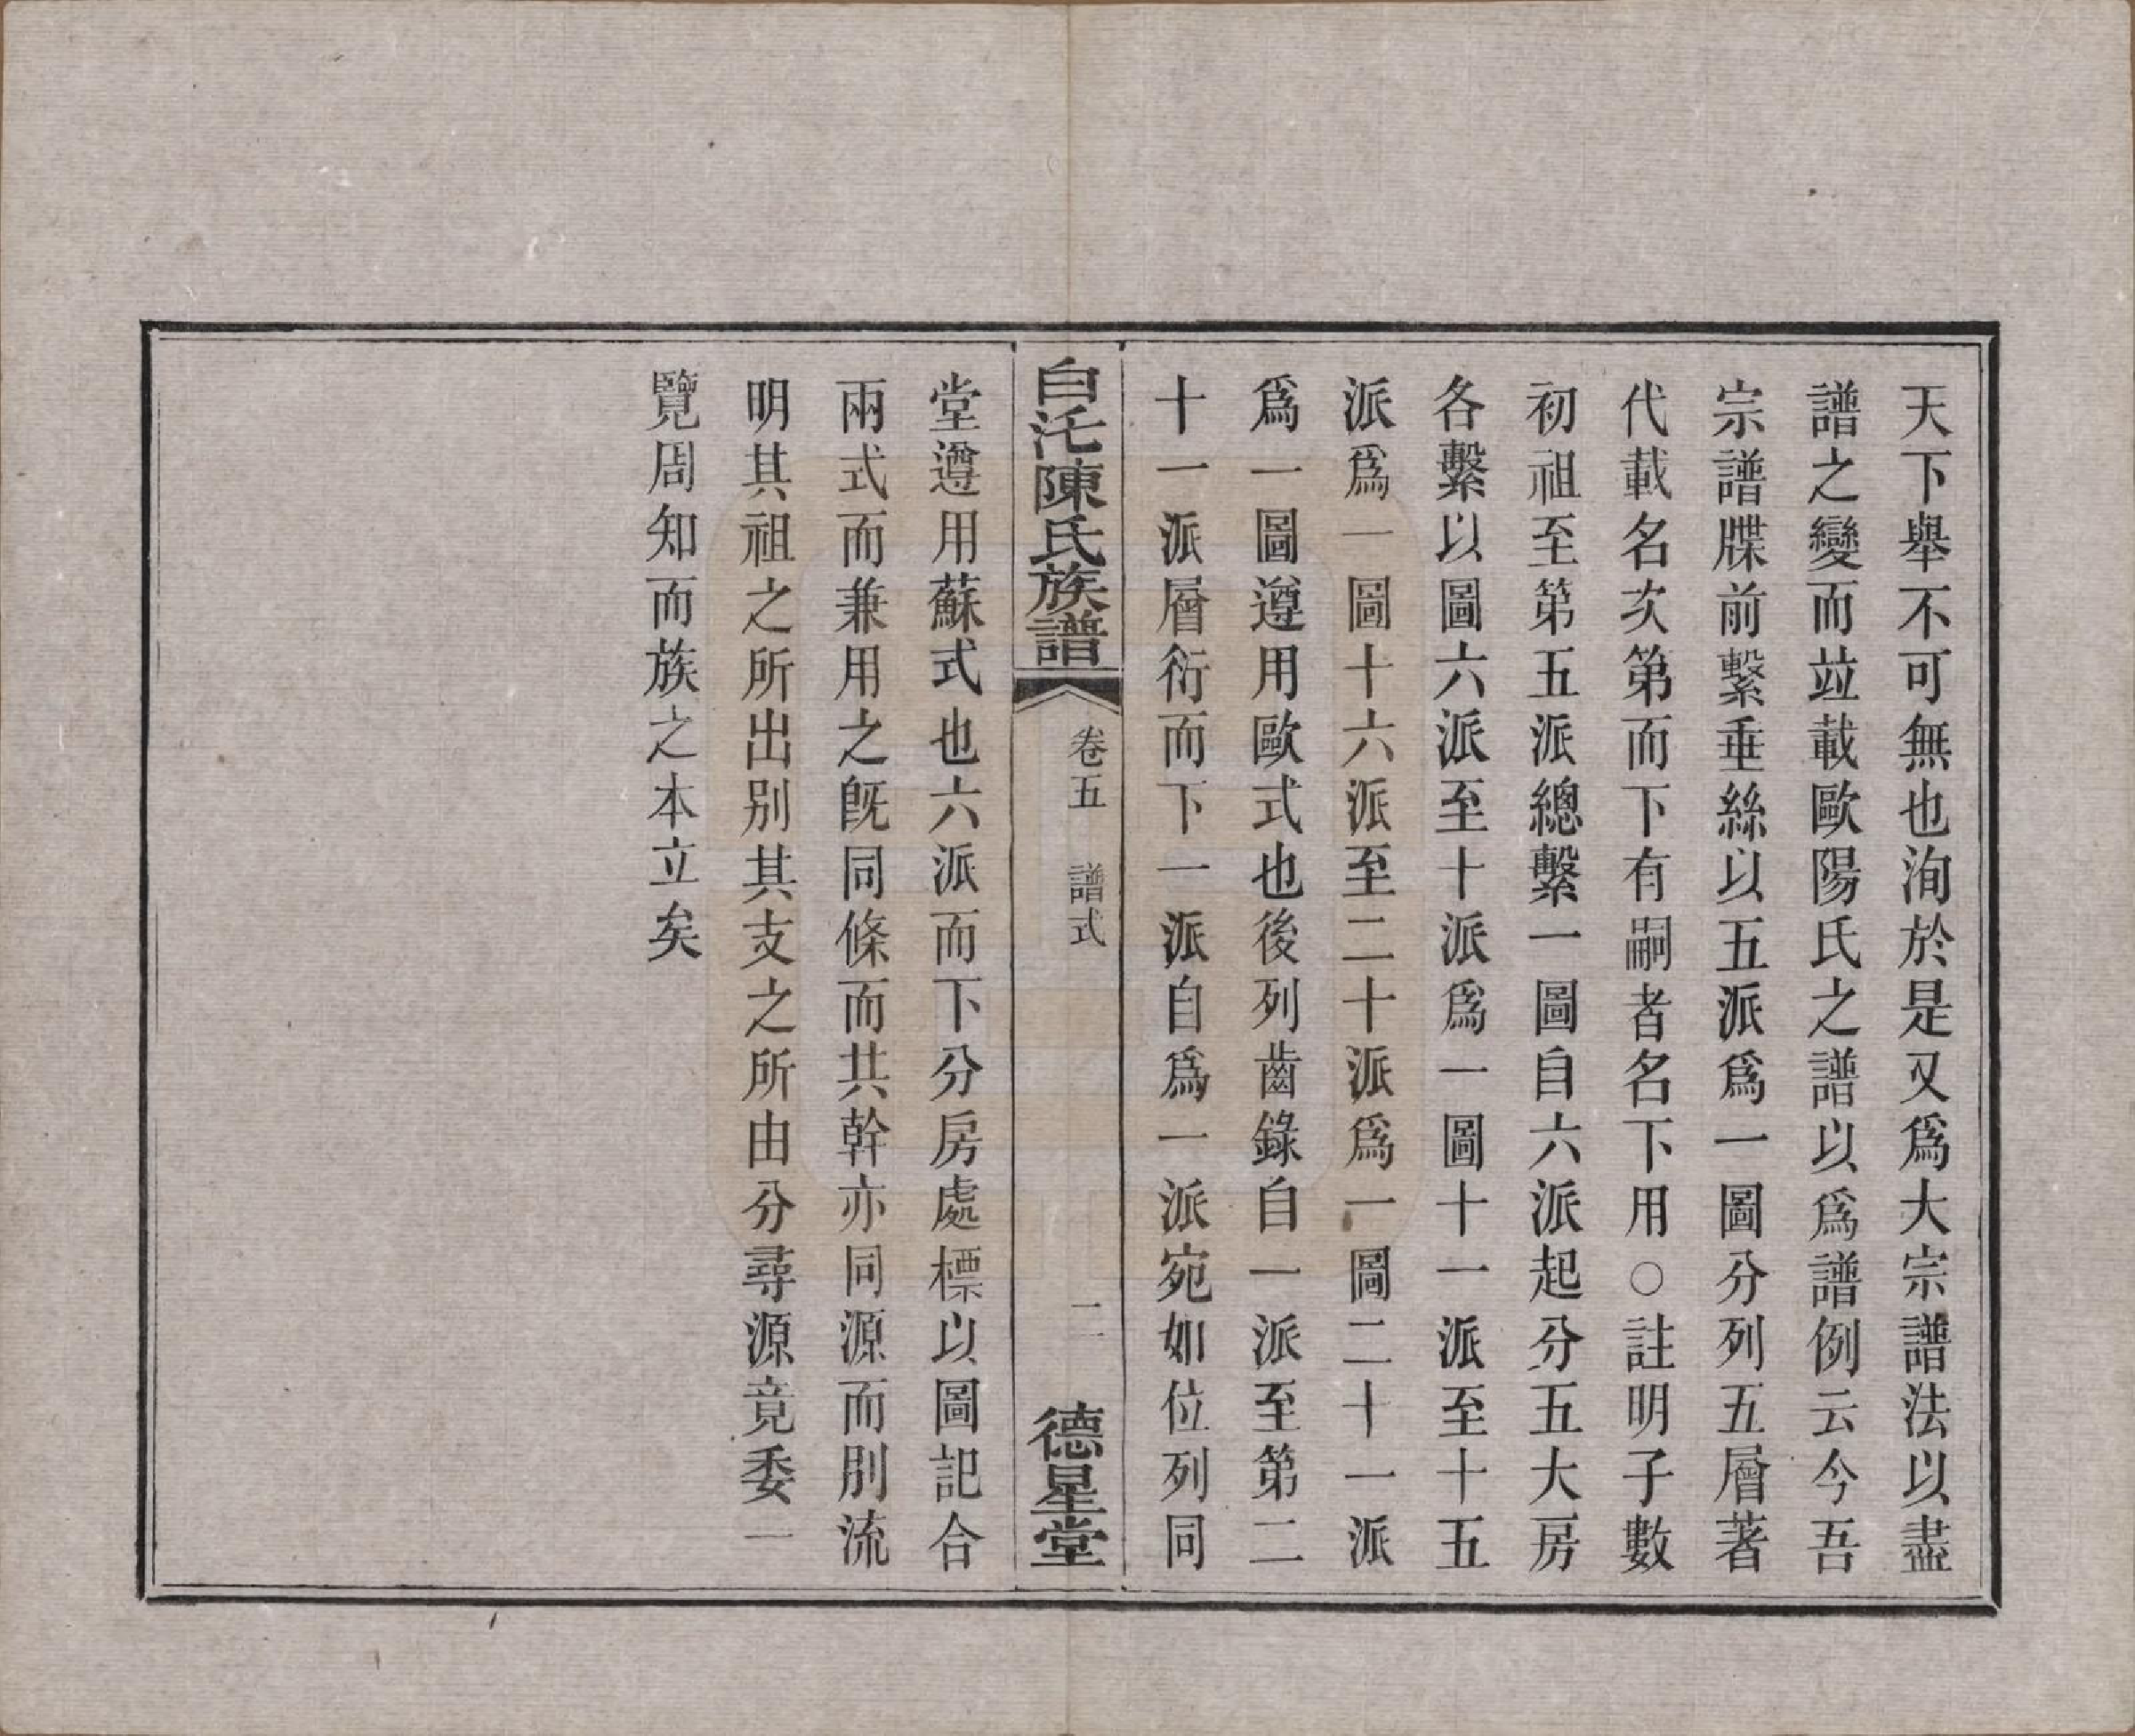 天下舉不可無也洵於是又爲大宗譜法以盡
譜之變而竝載歐陽氏之譜以爲譜例云今吾
宗譜牒前繫垂絲以五派爲一圖分列五層著
代載名次第而下有嗣者名下用○註明子數
初祖至第五派總繫一圖自六派起分五大房
各繫以圖六派至十派爲一圖十一派至十五
派爲一圖十六派至二十派爲一圖二十一派
爲一圖遵用歐式也後列齒錄自一派至第二
十一派層衍而下一派自爲一派宛如位列同
白沱陳氏族譜
卷五 譜式
二
德星堂
堂遵用蘇式也六派而下分房處標以圖記合
兩式而兼用之旣同條而共幹亦同源而別流
明其祖之所出別其支之所由分尋源竟委一
覽周知而族之本立矣